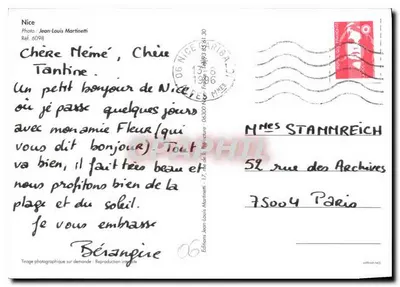 Nice
Photo : Jean-Louis Martinetti
Réf. 6098
Chère Mémé, Chère
Tantine.
Un petit bonjour de Nice,
où je passe quelques jours
avec mon amie Fleur (qui
vous dit bonjour). Tout
va bien, il fait très beau et
nous profitons bien de la
plage et du soleil.
Je vous embrasse
Bérangère
06
Tirage photographique sur demande - Reproduction interdite
Editions Jean-Louis Martinetti - 17, rue de
06 NICE
Mmes STANNREICH
52 rue des Archives
75004 Paris